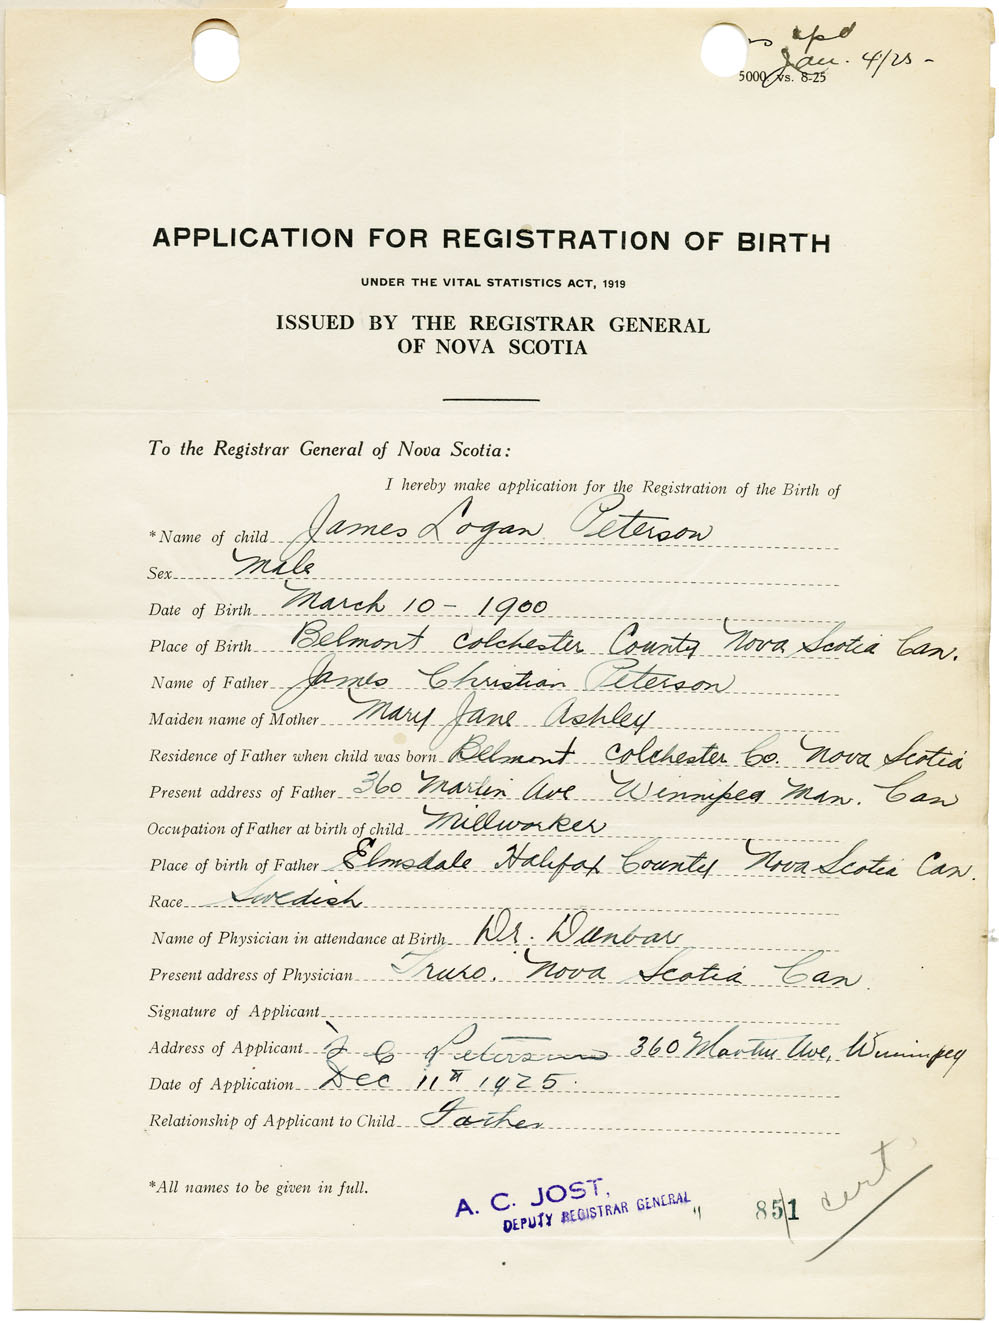 apd
Jan. 4/25 -
5000, vs. 8-25
APPLICATION FOR REGISTRATION OF BIRTH
UNDER THE VITAL STATISTICS ACT, 1919
ISSUED BY THE REGISTRAR GENERAL
OF NOVA SCOTIA
To the Registrar General of Nova Scotia:
I hereby make application for the Registration of the Birth of
*Name of child James Logan Peterson
Sex Male
Date of Birth March 10 - 1900
Place of Birth Belmont Colchester County Nova Scotia Can.
Name of Father James Christian Peterson
Maiden name of Mother Mary Jane Ashley
Residence of Father when child was born Belmont Colchester Co. Nova Scotia
Present address of Father 360 Martin Ave Winnipeg Man. Can
Occupation of Father at birth of child Millworker
Place of birth of Father Elmsdale Halifax County Nova Scotia Can.
Race Swedish
Name of Physician in attendance at Birth Dr. Dunbar
Present address of Physician Truro. Nova Scotia Can.
Signature of Applicant
Address of Applicant J C Peterson 360 Martin Ave, Winnipeg
Date of Application Dec 11th 1925.
Relationship of Applicant to Child Father
*All names to be given in full.
A. C. JOST,
DEPUTY REGISTRAR GENERAL
851
cert